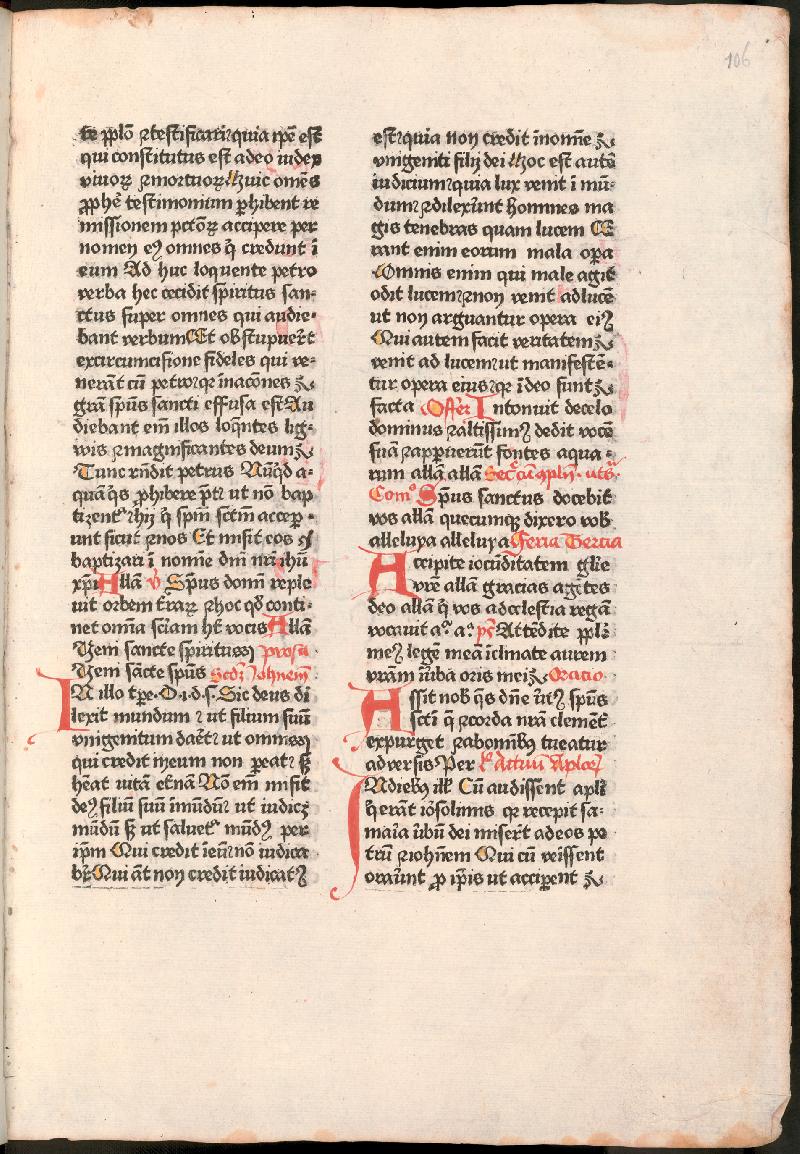 106
te ppłō ⁊testificari:quia ip̄e est
qui constitutus est adeo iudex
viuoꝝ ⁊mortuoꝝ Huic om̄es
ꝓphē testimonium ꝑhibent re
missionem pctōꝝ accipere per
nomen eꝰ omnes q̄ credunt ī
eum Ad huc loquente petro
verba hec cecidit spiritus san-
ctus super omnes qui audie-
bant verbum Et obstupuer̄t
excircumcisione fideles qui ve-
nerāt cū petro:qꝛ īnacōnes
grā sp̄us sancti effusa est Au
diebant em̄ illos loq̄ntes lig-
wis ⁊magnificantes deum
Tunc rn̄dit petrus Nūqd a-
quā q̄s ꝓhibere pt̄ ut nō bap
tizent᷒ hij q̄ sp̄m sctm̄ accep-
unt sicut ⁊nos Et iussit eos
baptizari ī nomīe dn̄i nr̄i ihū
xp̄i Allā v Sp̄us domī reple
uit orbem t̄raꝝ ⁊hoc qd̄ conti-
net om̄ia sciām hꝫ vocis Allā
Veni sancte spiritus prosa
Veni sācte sp̄us Scdꝫ Johnem
IN illo tp̄e. D. i. d. s. Sic deus di
lexit mundum ⁊ ut filium suū
vnigenitum daꝫt: ut omnis
qui credit ineum non ꝑeat: sꝫ
hēat uitā et̄nā Nō em̄ misit
deꝰ filiū suū īmūdū: ut iudicꝫ
mūdū sꝫ ut saluet᷒ mūdꝰ per
ip̄m Qui credit īeū: nō iudica
bꝫ Qui āt non credit iudicatꝰ
est: quia non credit īnomīe
vnigeniti filij dei Hoc est autē
iudicium: quia lux venit ī mū-
dum: ⁊dilexer̄unt homines ma
gis tenebras quam lucem E
rant enim eorum mala oꝑa
Omnis enim qui male agit
odit lucem: ⁊non venit adlucē
ut non arguantur opera eiꝰ
Qui autem facit veritatem
venit ad lucem: ut manifestē-
tur opera eius: qꝛ īdeo sunt
facta Offer Intonuit decelo
dominus ⁊altissimꝰ dedit vocē
suā ⁊apparuer̄nt fontes aqua-
rum allā allā Secͬ cū ꝯplꝫ. uts̄
Comͦ Sp̄us sanctus docebit
vos allā quecumqꝫ dixero vob
alleluya alleluya Feria Tercia
Accipite iocūditatem glīe
vrē allā gracias agētes
deo allā q̄ vos adcelestia regā
vocauit aͣ. aͣ. ps̄ Attēdite ppłe
meꝰ legē meā īclinate aurem
vrām īuba oris mei Oracio
Assit nob q̄s dn̄e v̄tꝰ sp̄us
sctī q̄ ⁊corda nrā clemēt
expurget ⁊abomībꝰ tueatur
aduersis Per Ł Actuū Aplorꝫ
INdiebꝰ ill̄ Cū audissent apłi
q̄erāt iōsolims qꝛ recepit sa-
maīa v̄bū dei miser̄t adeos pe
trū ⁊iohn̄em Qui cū veissent
orauer̄nt ꝓ ip̄is ut acciꝑent